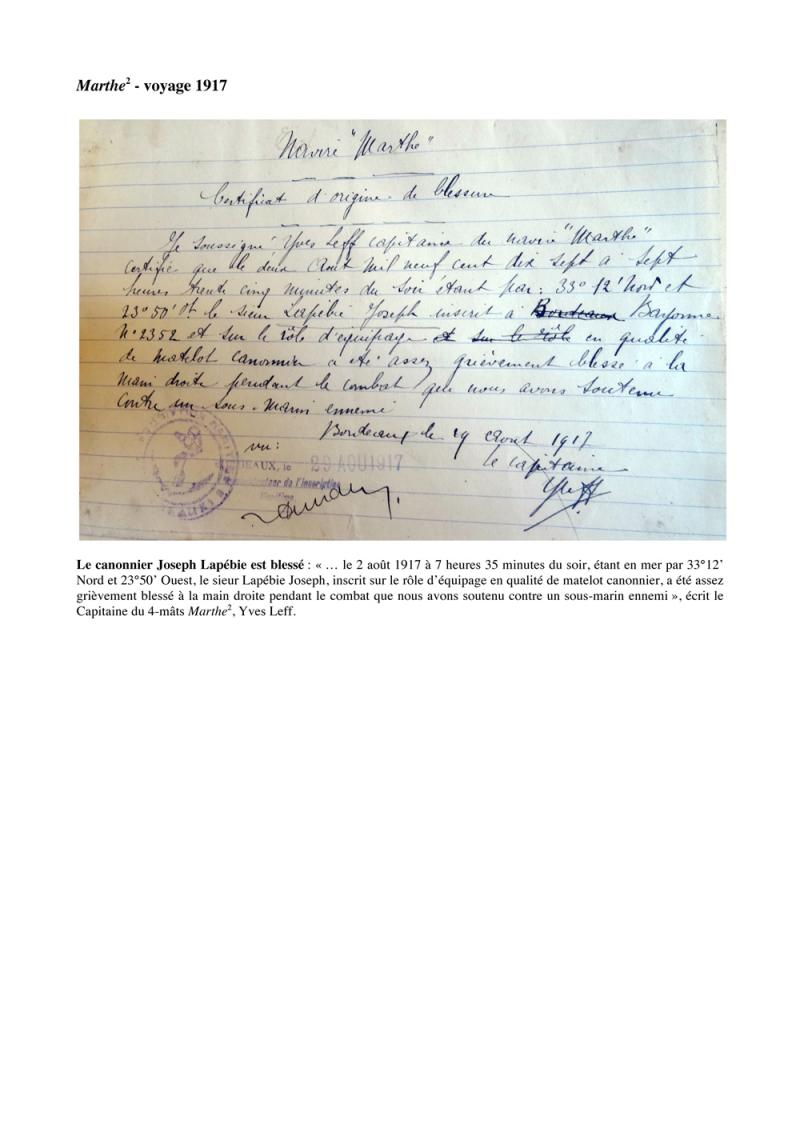 Marthe² - voyage 1917
Navire "Marthe"
Certificat d'origine de blessure
Je soussigné Yves Leff capitaine du navire "Marthe"
certifie que le deux Aout mil neuf cent dix sept à sept
heures trente cinq minutes du soir étant par: 33° 12' Nord et
23° 50' Ot le sieur Lapébie Joseph inscrit à Bordeaux Bayonne
N° 2352 et sur le rôle d'équipage et sur le rôle en qualité
de matelot canonnier a été assez grièvement blessé à la
main droite pendant le combat que nous avons soutenu
contre un sous-marin ennemi
Bordeaux le 29 Aout 1917
vu:
le capitaine
DEAUX, le 29 AOU 1917
YLeff
de l'Inscription
Le canonnier Joseph Lapébie est blessé : « … le 2 août 1917 à 7 heures 35 minutes du soir, étant en mer par 33°12’
Nord et 23°50’ Ouest, le sieur Lapébie Joseph, inscrit sur le rôle d’équipage en qualité de matelot canonnier, a été assez
grièvement blessé à la main droite pendant le combat que nous avons soutenu contre un sous-marin ennemi », écrit le
Capitaine du 4-mâts Marthe², Yves Leff.